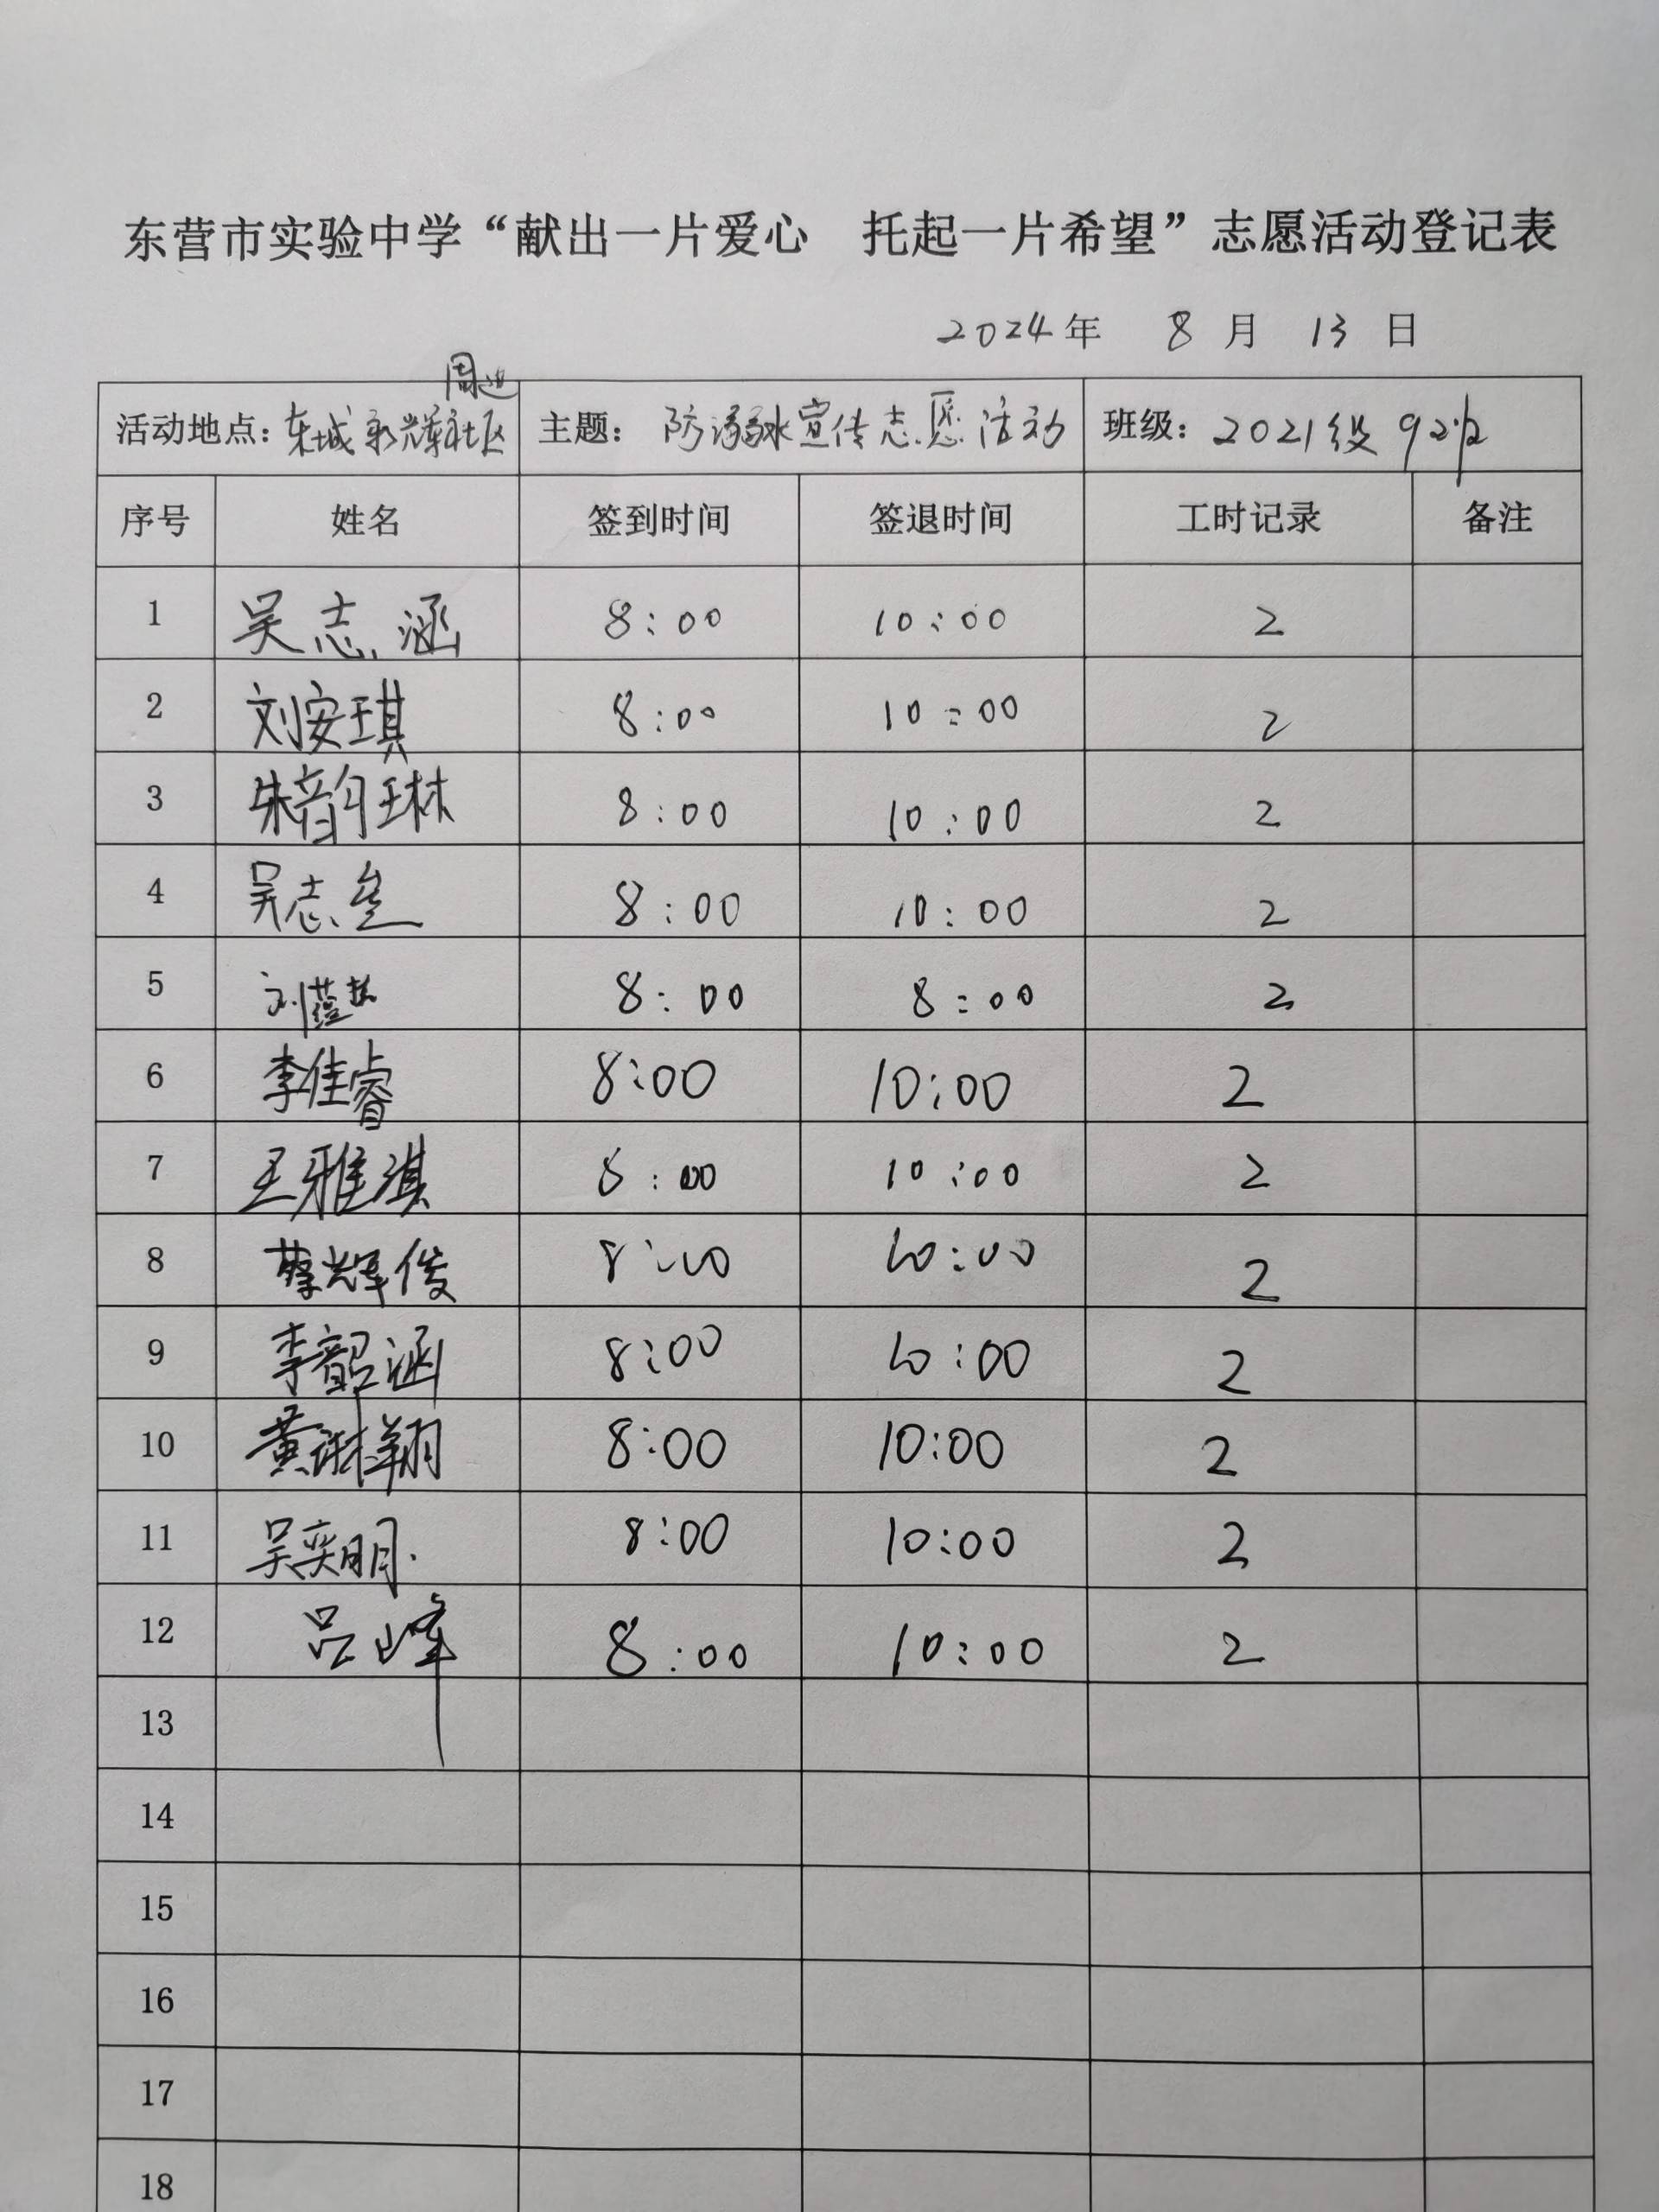 东营市实验中学“献出一片爱心 托起一片希望”志愿活动登记表
2024年 8月 13日
周边
活动地点：东城永辉社区 主题： 防溺水宣传志愿活动 班级：2021级92班
序号 姓名 签到时间 签退时间 工时记录 备注
1 吴志涵 8:00 10:00 2
2 刘安琪 8:00 10:00 2
3 朱韵琳 8:00 10:00 2
4 吴志垒 8:00 10:00 2
5 刘蕴 8:00 8:00 2
6 李佳睿 8:00 10:00 2
7 王雅淇 8:00 10:00 2
8 蔡辉俊 8:00 10:00 2
9 李韶涵 8:00 10:00 2
10 黄翔 8:00 10:00 2
11 吴奕明 8:00 10:00 2
12 吕峰 8:00 10:00 2
13
14
15
16
17
18